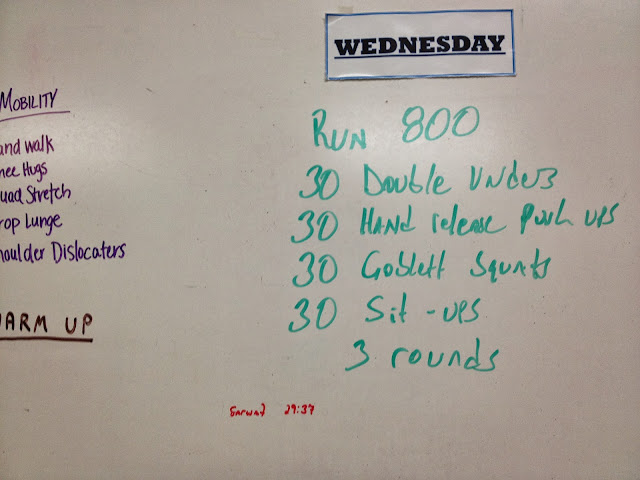 WEDNESDAY
MOBILITY
and walk
nee Hugs
uad Stretch
rop Lunge
houlder Dislocaters
ARM UP
RUN 800
30 Double Unders
30 HAND release Push ups
30 Goblett Squats
30 Sit-ups
3 rounds
29:37